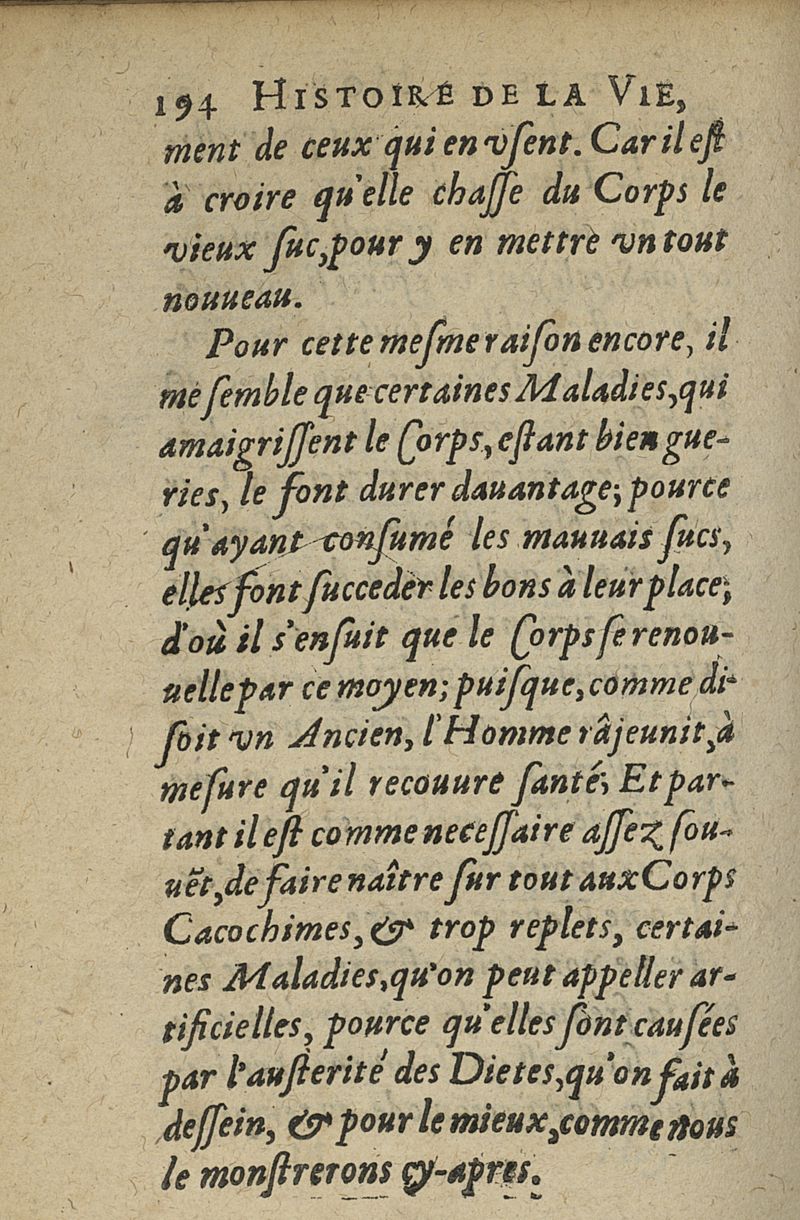 194 HISTOIRE DE LA VIE,
ment de ceux qui en vſent. Car il eſt
à croire qu'elle chaſſe du Corps le
vieux ſuc, pour y en mettre vn tout
nouueau.
Pour cette meſme raiſon encore, il
me ſemble que certaines Maladies, qui
amaigriſſent le Corps, eſtant bien gue-
ries, le font durer dauantage; pource
qu'ayant conſumé les mauuais ſucs,
elles font ſucceder les bons à leur place;
d'où il s'enſuit que le Corps ſe renou-
uelle par ce moyen; puiſque, comme di-
ſoit vn Ancien, l'Homme râjeunit, à
meſure qu'il recouure ſanté; Et par-
tant il eſt comme neceſſaire aſſez ſou-
uẽt, de faire naître ſur tout aux Corps
Cacochimes, & trop replets, certai-
nes Maladies, qu'on peut appeller ar-
tificielles, pource qu'elles ſont cauſées
par l'auſterité des Dietes, qu'on fait à
deſſein, & pour le mieux, comme nous
le monſtrerons cy-apres.